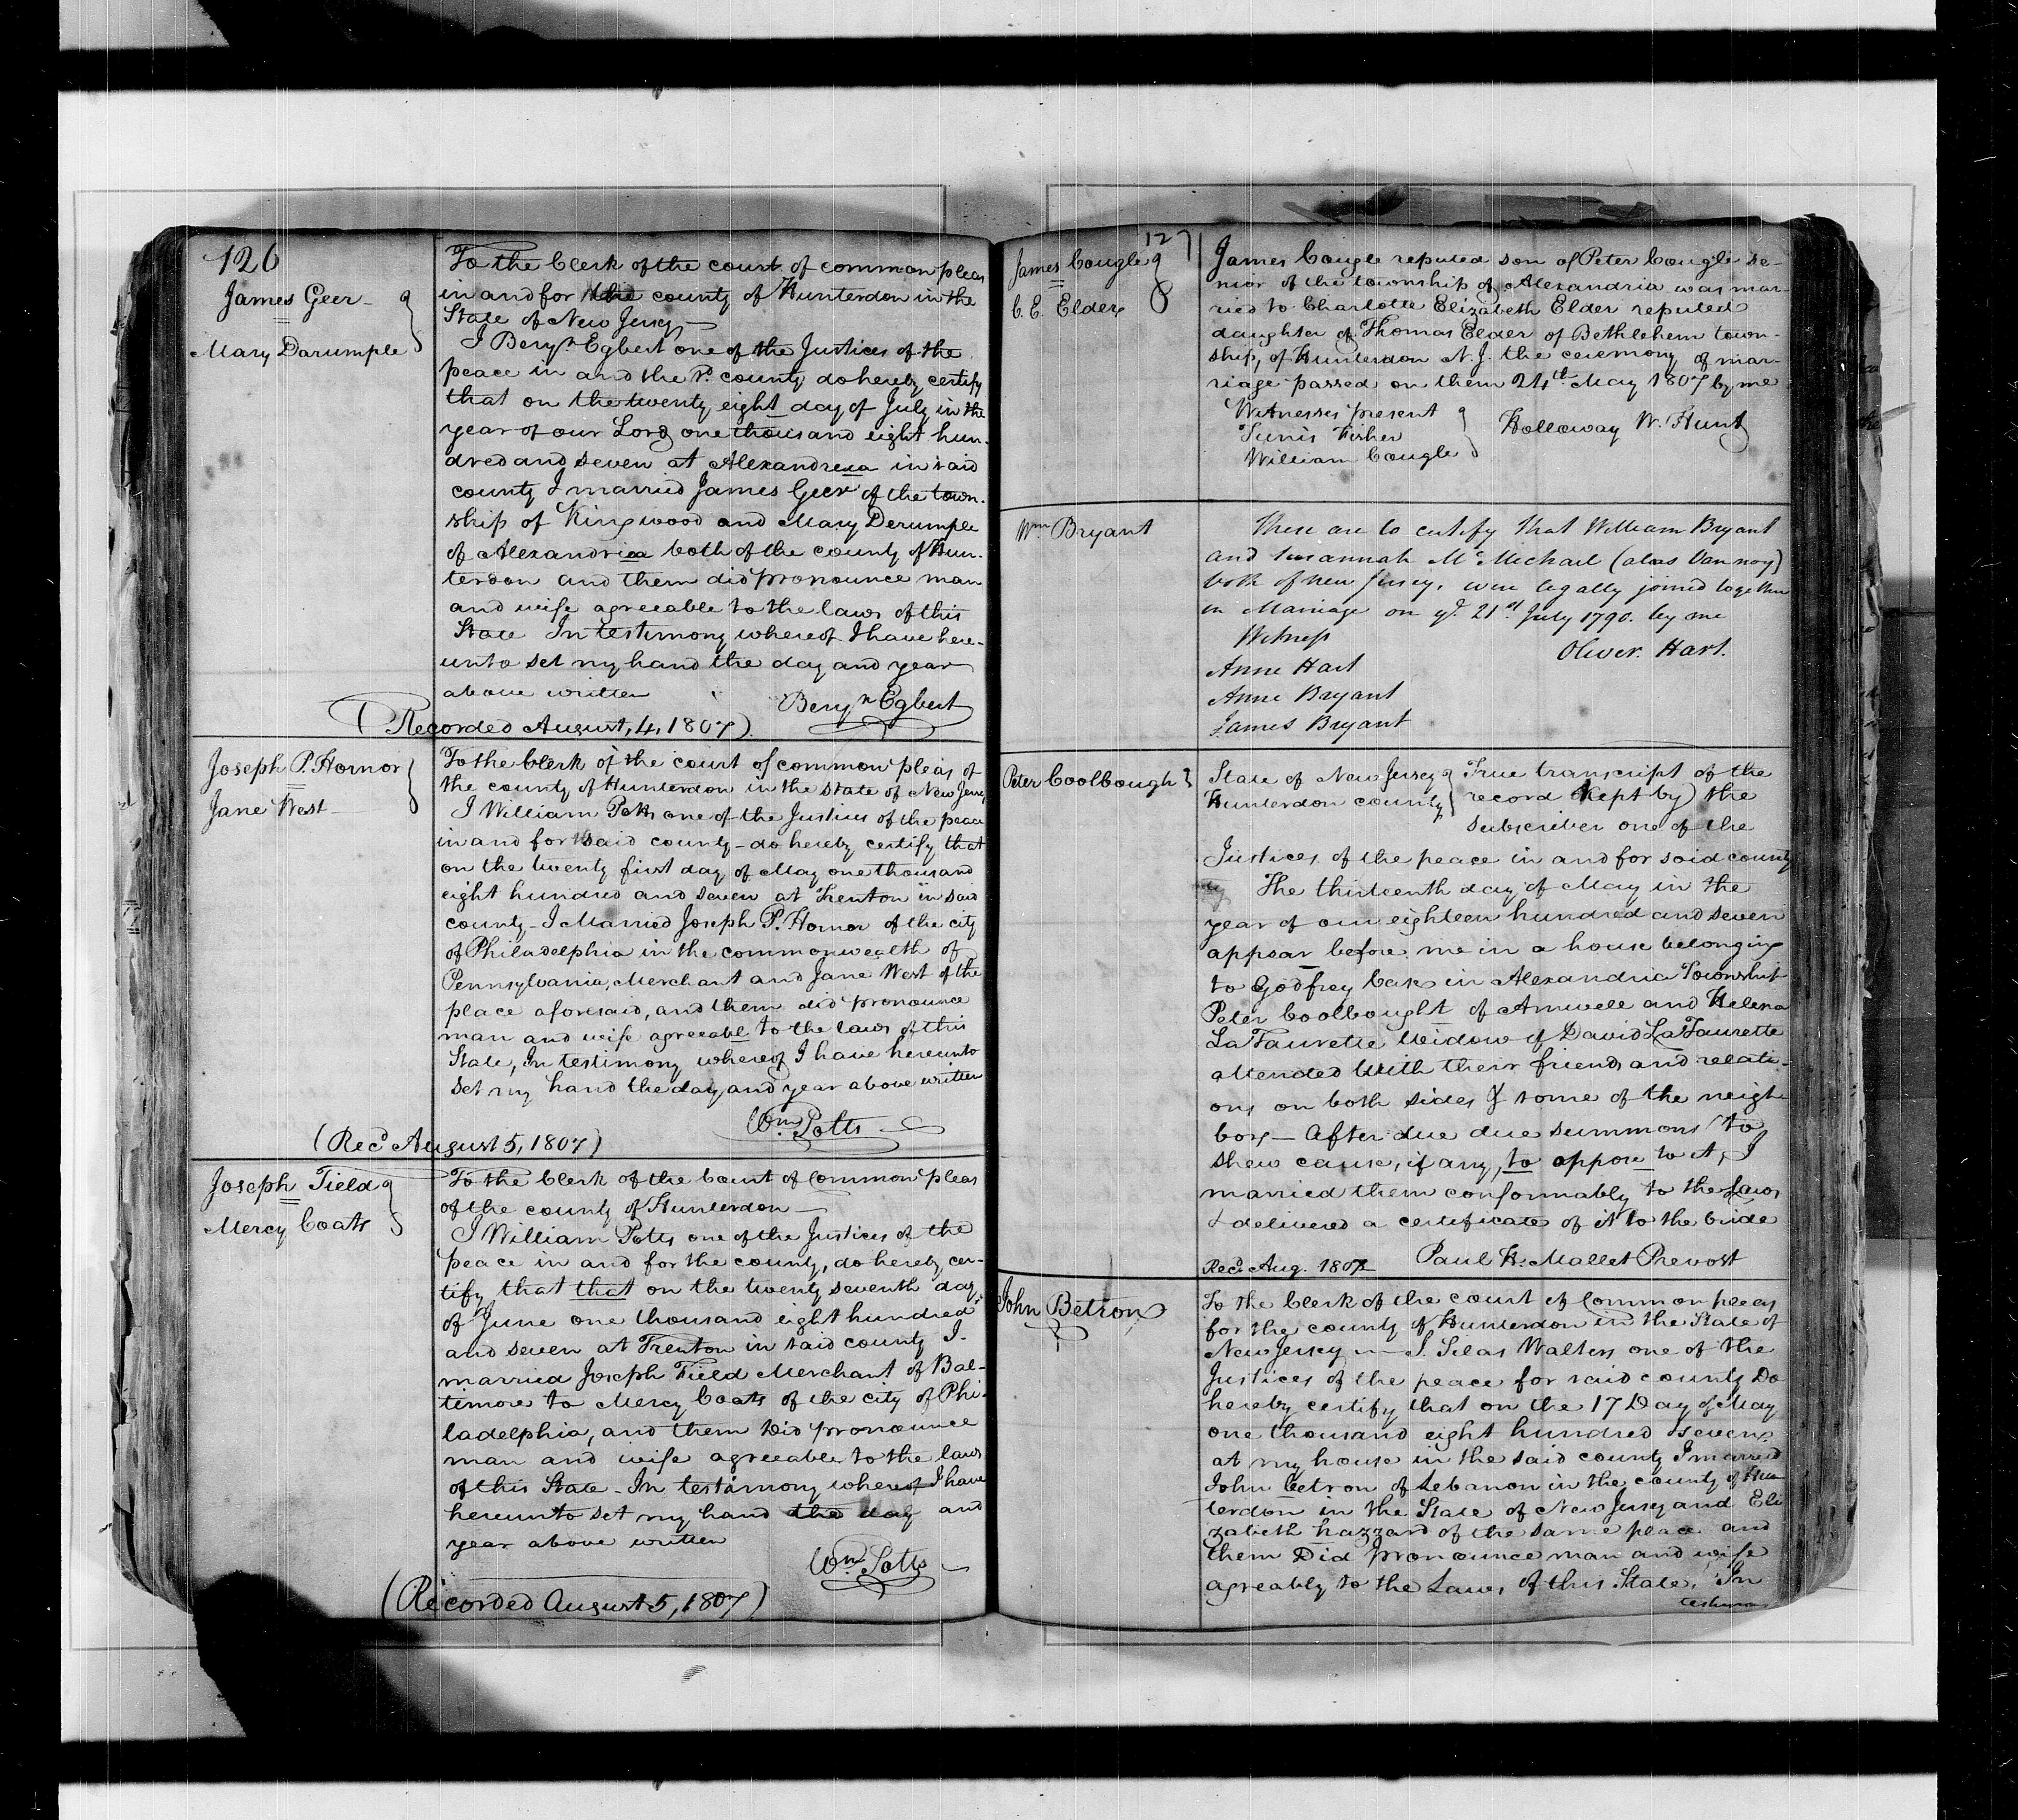 126
James Geer
Mary Darumple
To the Clerk of the court of common pleas
in and for the county of Hunterdon in the
State of New Jersey
I Benj.n Egbert one of the Justices of the
peace in and the s.d county do hereby certify
that on the twenty eight day of July in the
year of our Lord one thousand eight hun-
dred and seven at Alexandria in said
county I married James Geer of the town-
ship of Kingwood and Mary Derumple
of Alexandria both of the county of Hun-
terdon and them did pronounce man
and wife agreeable to the laws of this
State In testimony whereof I have here-
unto set my hand the day and year
above written Benj.n Egbert
(Recorded August, 4, 1807)
Joseph P. Hornor
Jane West
To the Clerk of the court of common pleas of
the county of Hunterdon in the state of New Jersey
I William Potts one of the Justices of the peace
in and for said county - do hereby certify that
on the twenty first day of May one thousand
eight hundred and seven at Trenton in said
county - I Married Joseph P. Hornor of the city
of Philadelphia in the commonwealth of
Pennsylvania, Merchant and Jane West of the
place aforesaid, and them did pronounce
man and wife agreeabl to the laws of this
State, In testimony whereof I have hereunto
set my hand the day and year above written
Wm. Potts
(Rec.d August 5, 1807)
Joseph Field
Mercy Coats
To the Clerk of the Court of Common pleas
of the county of Hunterdon
I William Potts one of the Justices of the
peace in and for the county, do hereby cer-
tify that that on the twenty seventh day
of June one thousand eight hundred
and seven at Trenton in said county I
married Joseph Field Merchant of Bal-
timore to Mercy Coats of the city of Phi-
ladelphia, and them Did pronounce
man and wife agreeable to the laws
of this State - In testimony whereof I have
hereunto set my hand the day and
year above written
Wm. Potts
(Recorded August 5, 1807)
127
James Cougle
C. E. Elder
James Cougle reputed son of Peter Cougle se-
nior of the township of Alexandria was mar-
ried to Charlotte Elizabeth Elder reputed
daughter of Thomas Elder of Bethlehem town-
ship, of Hunterdon N. J. the ceremony of mar-
riage passed on them 24th May 1807 by me
Witnesses present
Tunis Fisher
William Cougle
Holloway W. Hunt
Wm Bryant
These are to certify that William Bryant
and Susannah McMichael (alas Vannoy)
both of New Jersey, were legally joined together
in Marriage on ye. 21st July 1790. by me
Witness
Oliver. Hart.
Anne Hart
Anne Bryant
James Bryant
Peter Coolbough
State of New Jersey
Hunterdon county
True transcript of the
record kept by the
subscriber one of the
Justices of the peace in and for said county
The thirteenth day of May in the
year of our eighteen hundred and seven
appear before me in a house belonging
to Godfrey Case in Alexandria Township
Peter Coolbought of Amwell and Helena
LaFaurette Widow of David LaFaurette
attended With their friends and relati-
ons on both sides & some of the neigh
bors - After due due summons to
shew cause, if any, to oppose to it, I
married them conformably to the Laws
& delivered a certificate of it to the bride
Rec.d Aug. 1807 Paul H. Mallet Prevost
John Betron
To the Clerk of the court of Common pleas
for the county of Hunterdon in the State of
New Jersey - I. Silas Walters one of the
Justices of the peace for said county Do
hereby certify that on the 17 Day of May
one thousand eight hundred seven
at my house in the said county I married
John Betron of Lebanon in the county of Hun
terdon in the State of New Jersey and Eli
zabeth hazzard of the same place and
them Did pronounce man and wife
agreably to the Laws of this State. In
testimony